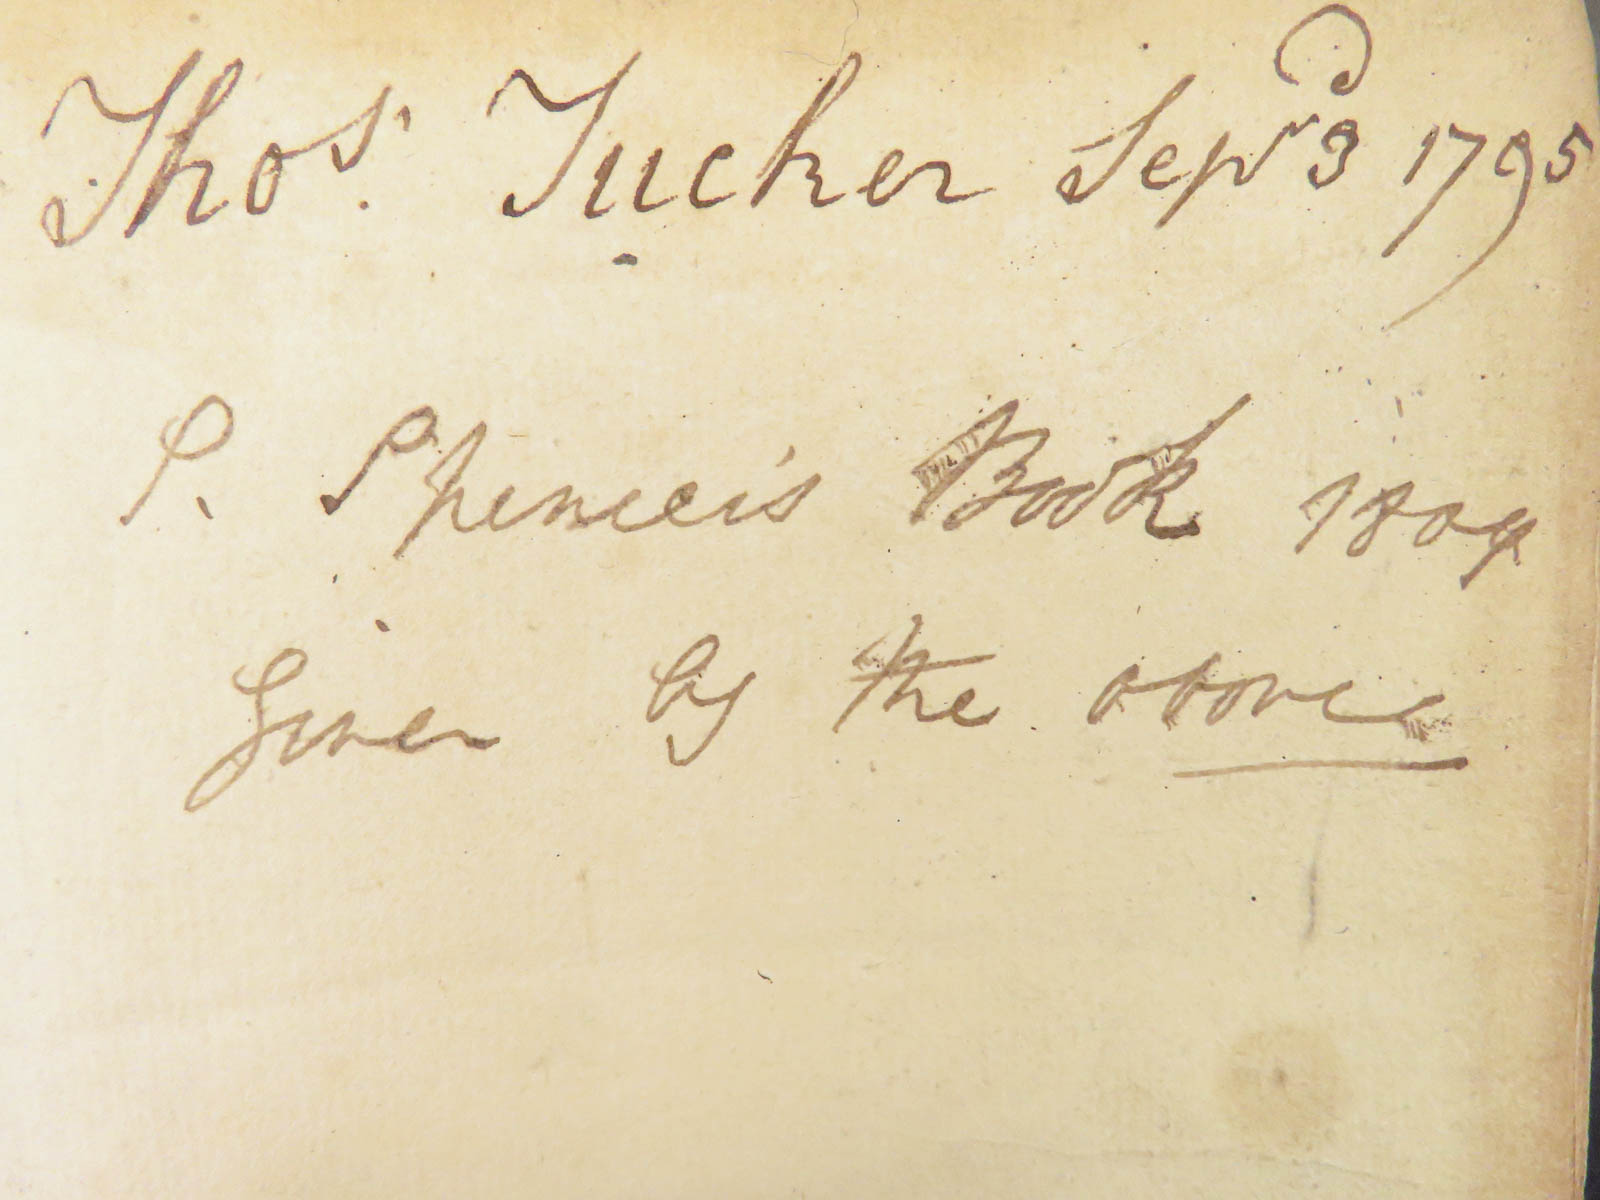 Thos. Tucker Sepr 3d 1795
P. Spencer's Book 1804
Given by the above